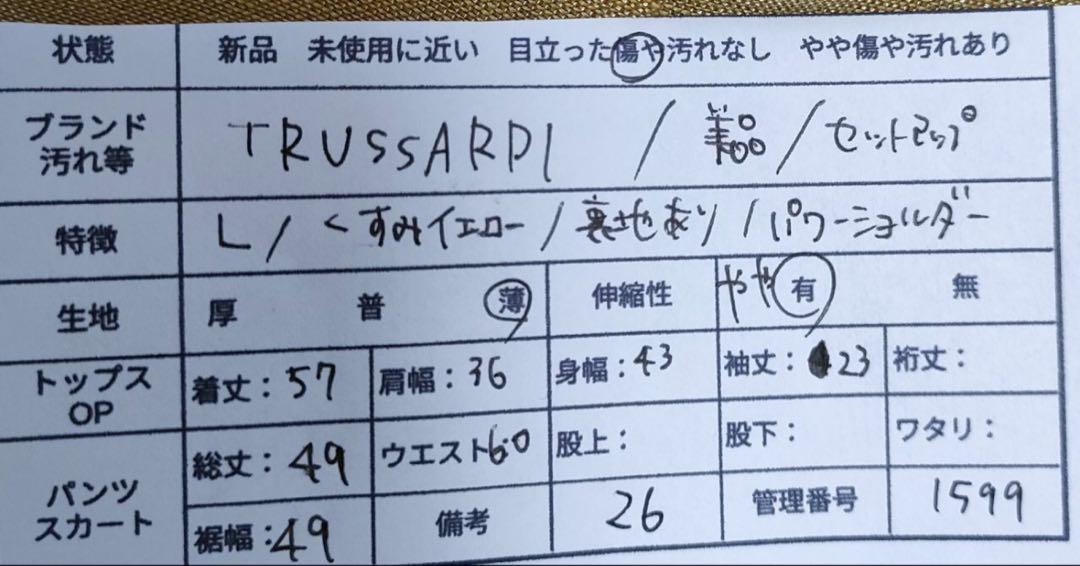 状態 新品 未使用に近い 目立った傷や汚れなし やや傷や汚れあり
ブランド
汚れ等 TRUSSARDI / 美品 / セットアップ
特徴 L / くすみイエロー / 裏地あり / パワーショルダー
生地 厚 普 薄 伸縮性 やや 有 無
トップス
OP 着丈：57 肩幅：36 身幅：43 袖丈：23 裄丈：
パンツ
スカート 総丈：49 ウエスト60 股上： 股下： ワタリ：
裾幅：49 備考 26 管理番号 1599